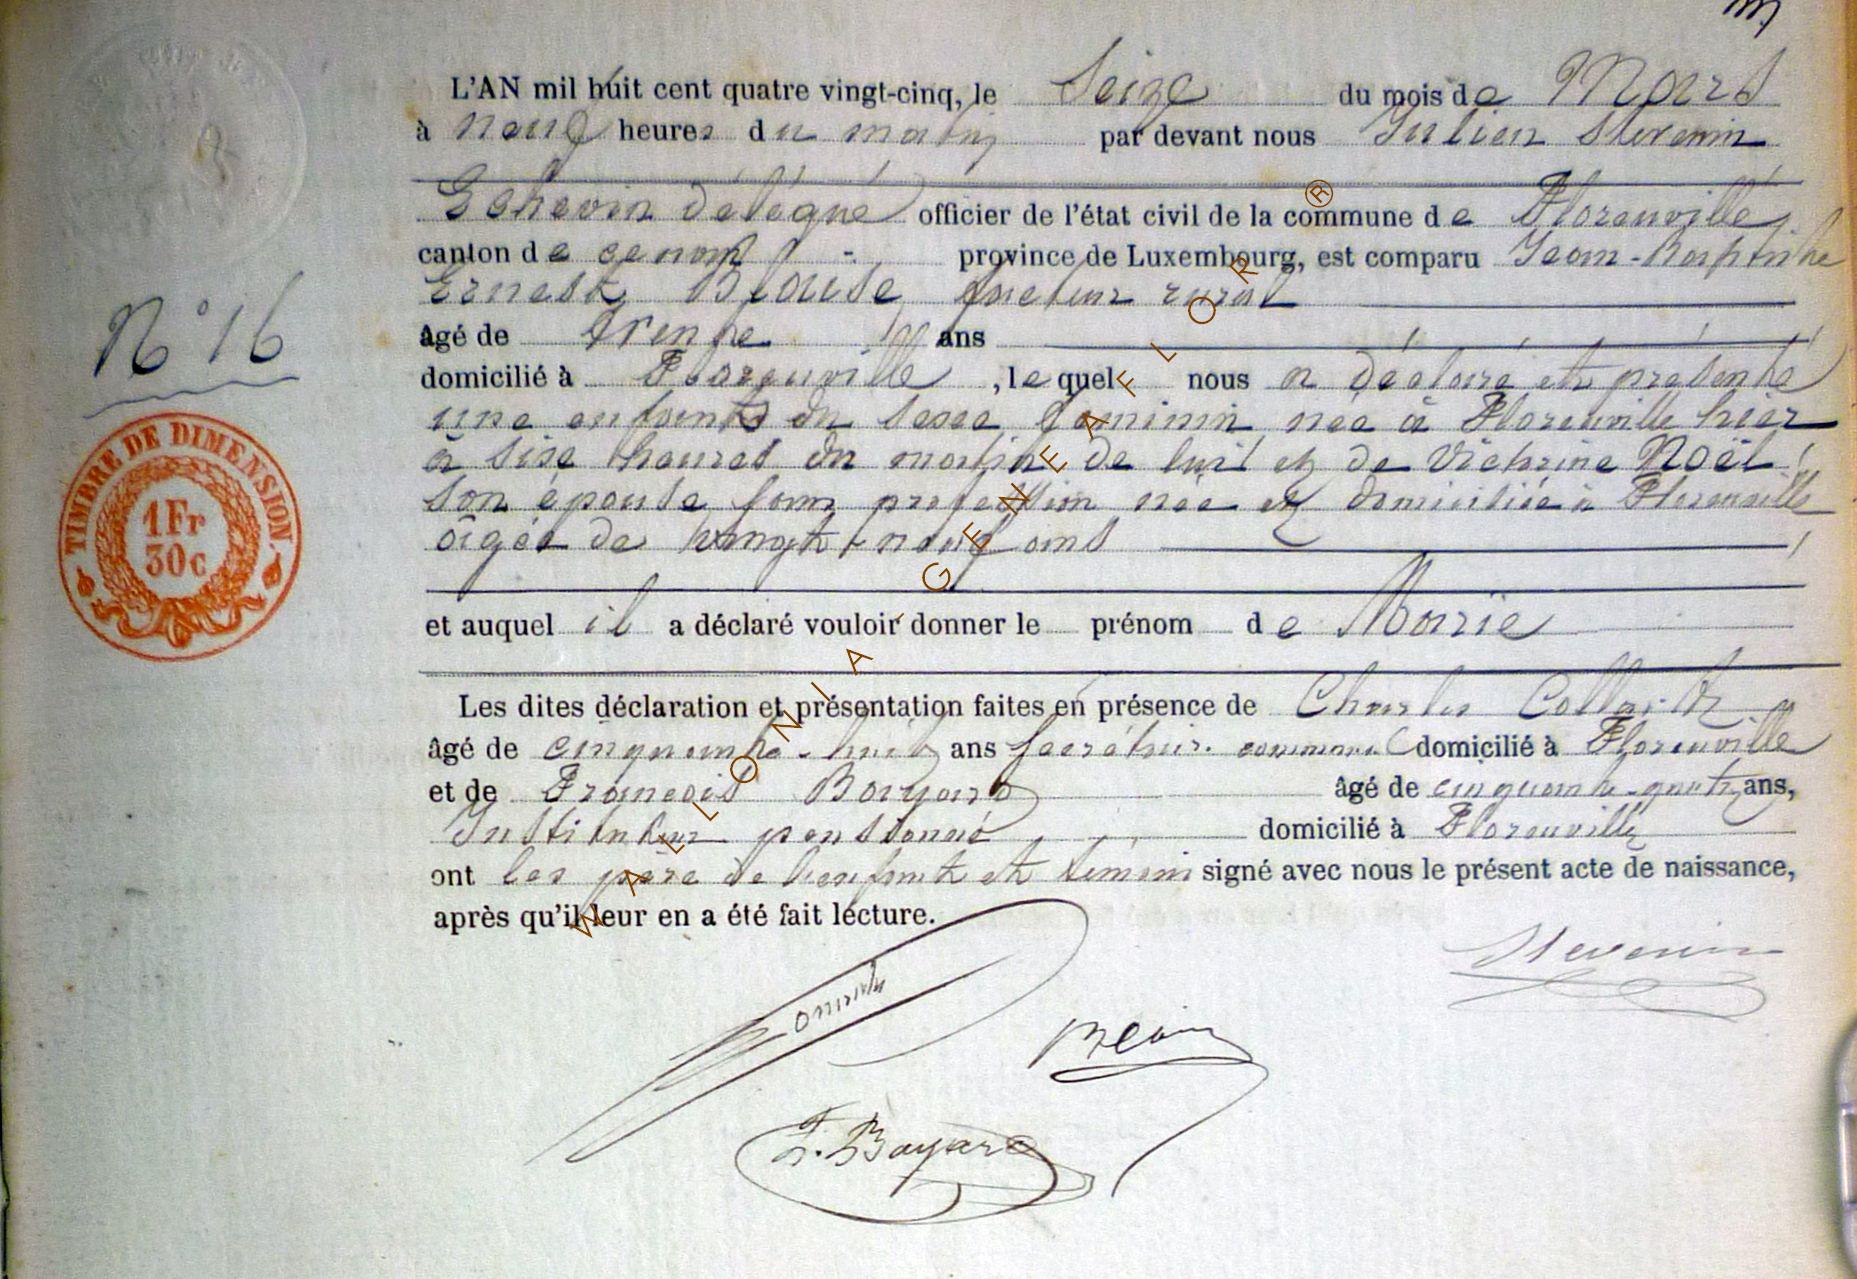 L'AN mil huit cent quatre vingt-cinq, le Seize du mois de Mars
à neuf heures du matin par devant nous Julien Stevenin
Echevin délégué officier de l'état civil de la commune de Florenville
canton de ce nom - province de Luxembourg, est comparu Jean-Baptiste
Ernest Blaise facteur rural
âgé de trente ans
domicilié à Florenville, lequel nous a déclaré et présenté
une enfant du sexe féminin née à Florenville hier
à six heures du matin de lui et de Victorine Noël
son épouse sans profession née et domiciliée à Florenville
âgée de vingt-neuf ans
N° 16
TIMBRE DE DIMENSION
1 Fr
30 c
et auquel il a déclaré vouloir donner le prénom de Marie
Les dites déclaration et présentation faites en présence de Charles
âgé de cinquante-huit ans secrétaire communal domicilié à Florenville
et de François Bayard âgé de cinquante-quatre ans,
Instituteur pensionné domicilié à Florenville
ont les père de l'enfant et témoins signé avec nous le présent acte de naissance,
après qu'il leur en a été fait lecture.
Stevenin
F. Bayard
WALLONIA - GENEAFLOR ®